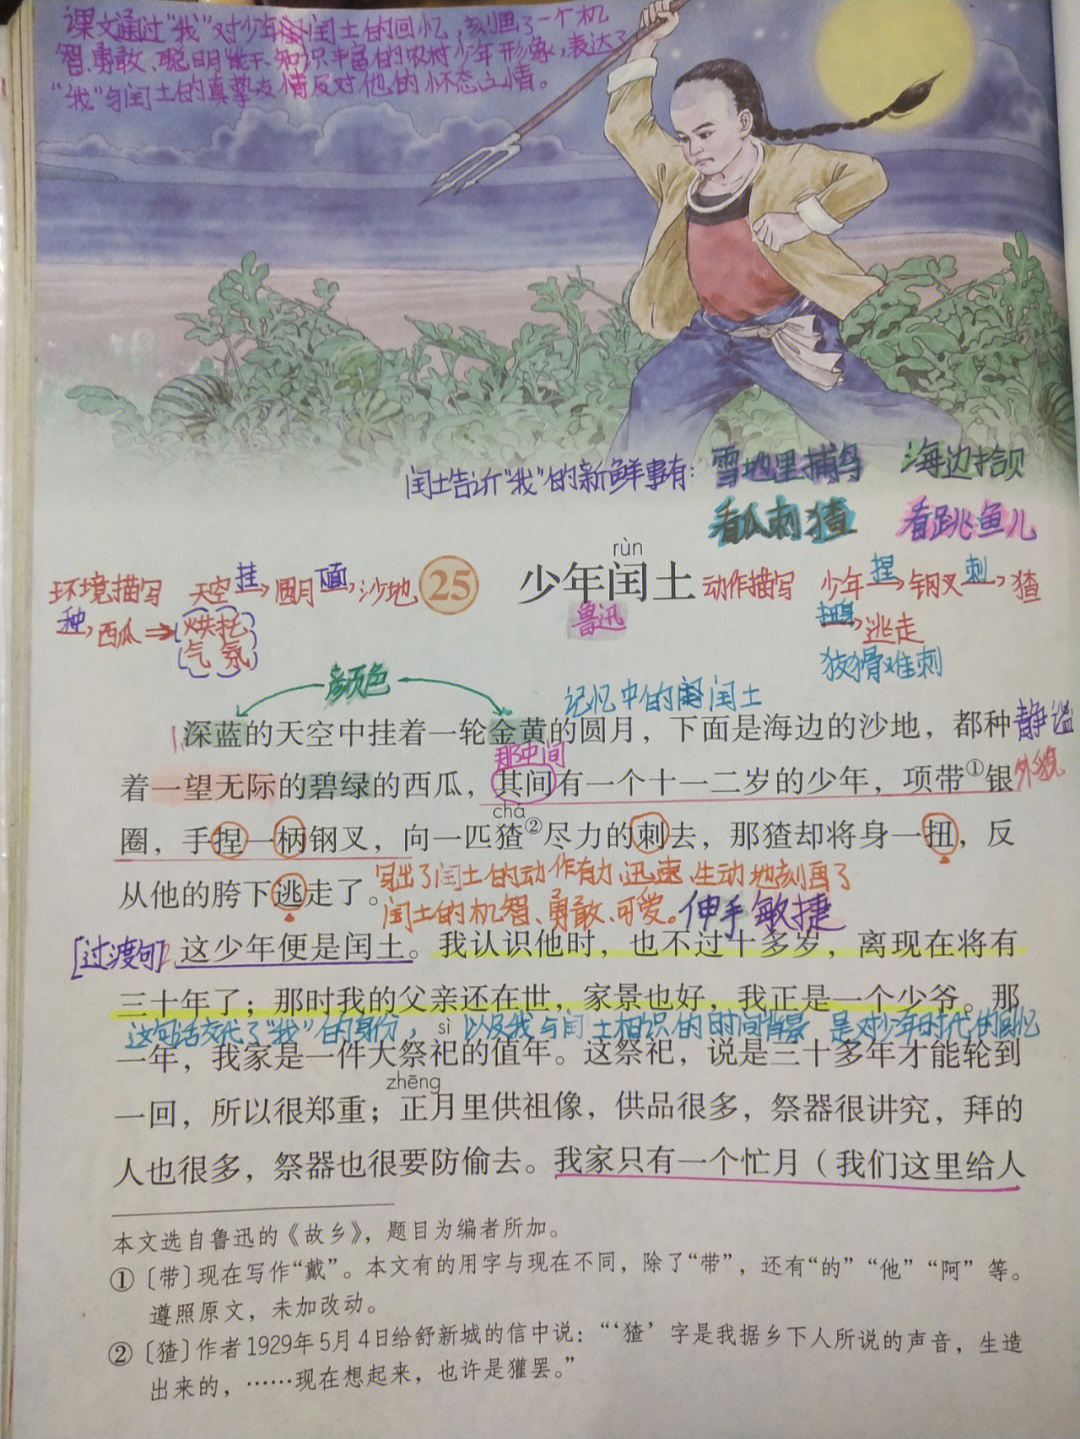 课文通过“我”对少年闰土的回忆,刻画了一个机
智、勇敢、聪明能干、知识丰富的农村少年形象,表达了
“我”与闰土的真挚友情及对他的怀念之情。
闰土告诉“我”的新鲜事有: 雪地里捕鸟 海边拾贝
看瓜刺猹 看跳鱼儿
rùn
环境描写 天空 挂 圆月 下面 沙地 25 少年闰土 动作描写 少年 捏 钢叉 刺 猹
种 西瓜 烘托 鲁迅 扭身 逃走
气氛 狡猾难刺
颜色 记忆中的闰土
深蓝的天空中挂着一轮金黄的圆月,下面是海边的沙地,都种 静谧
那中间
着一望无际的碧绿的西瓜,其间有一个十一二岁的少年,项带①银 外貌
chá
圈,手捏一柄钢叉,向一匹猹②尽力的刺去,那猹却将身一扭,反
从他的胯下逃走了。 写出了闰土的动作有力、迅速,生动地刻画了
闰土的机智、勇敢、可爱。 伸手敏捷
[过渡句] 2 这少年便是闰土。我认识他时,也不过十多岁,离现在将有
三十年了;那时我的父亲还在世,家景也好,我正是一个少爷。那
这句话交代了“我”的身份, 以及我与闰土相识的时间背景 是对少年时代的回忆
sì
一年,我家是一件大祭祀的值年。这祭祀,说是三十多年才能轮到
zhēng
一回,所以很郑重;正月里供祖像,供品很多,祭器很讲究,拜的
人也很多,祭器也很要防偷去。我家只有一个忙月(我们这里给人
本文选自鲁迅的《故乡》,题目为编者所加。
①〔带〕现在写作“戴”。本文有的用字与现在不同,除了“带”,还有“的”“他”“阿”等。
遵照原文,未加改动。
②〔猹〕作者1929年5月4日给舒新城的信中说:“‘猹’字是我据乡下人所说的声音,生造
出来的,……现在想起来,也许是獾罢。”